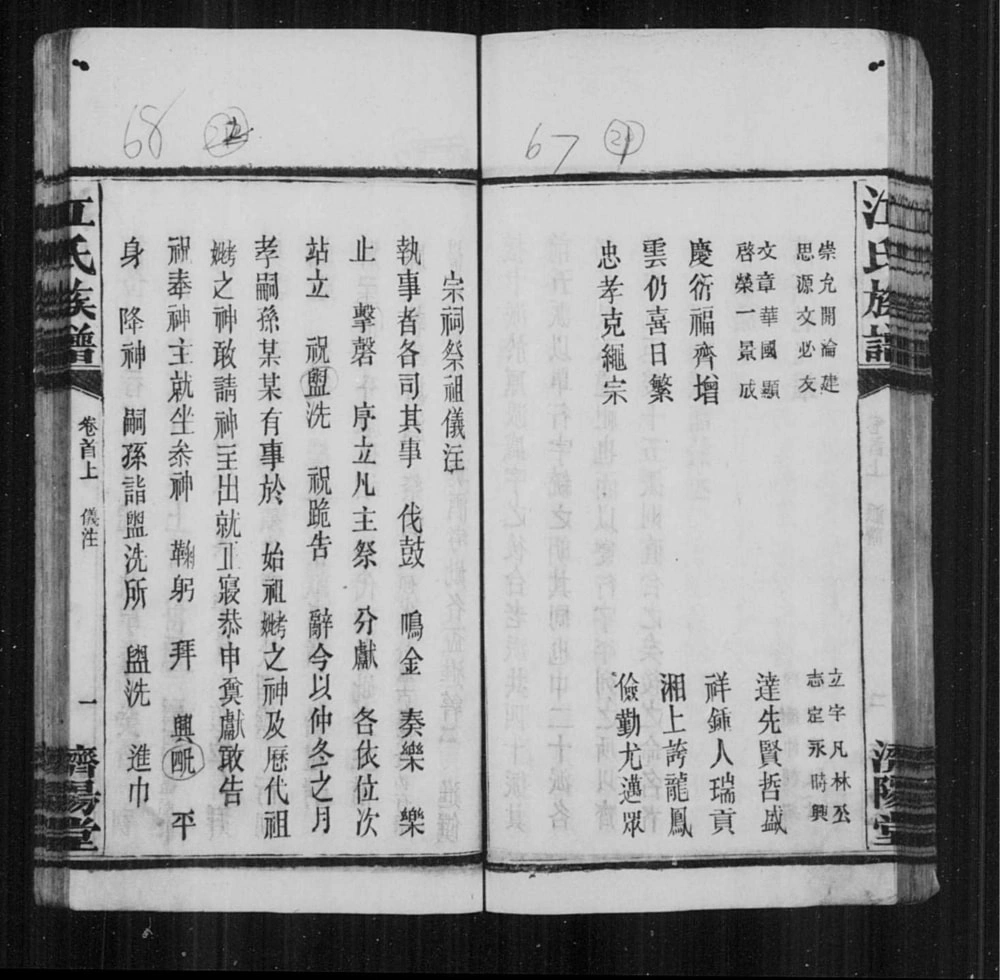 67
68
江氏族譜
濟陽堂
崇允開淪建
立字凡林丞
思源文必友
志定永時興
文章華國顯
達先賢哲盛
啓榮一景成
慶衍福齊增
祥鍾人瑞貢
雲仍喜日繁
湘上誇龍鳳
忠孝克繩宗
儉勤尤邁眾
宗祠祭祖儀注
執事者各司其事 伐鼓 鳴金 奏樂 樂
止 擊磬 序立凡主祭 分獻 各依位次
站立 祝盥洗 祝跪告 辭今以仲冬之月
孝嗣孫某某有事於 始祖妣考之神及歷代祖
妣考之神敢請神主出就正寢恭申奠獻敢告
祝奉神主就坐叅神 鞠躬 拜 興 平
身 降神 嗣孫詣盥洗所 盥洗 進巾
江氏族譜
卷首上 儀注
一
濟陽堂